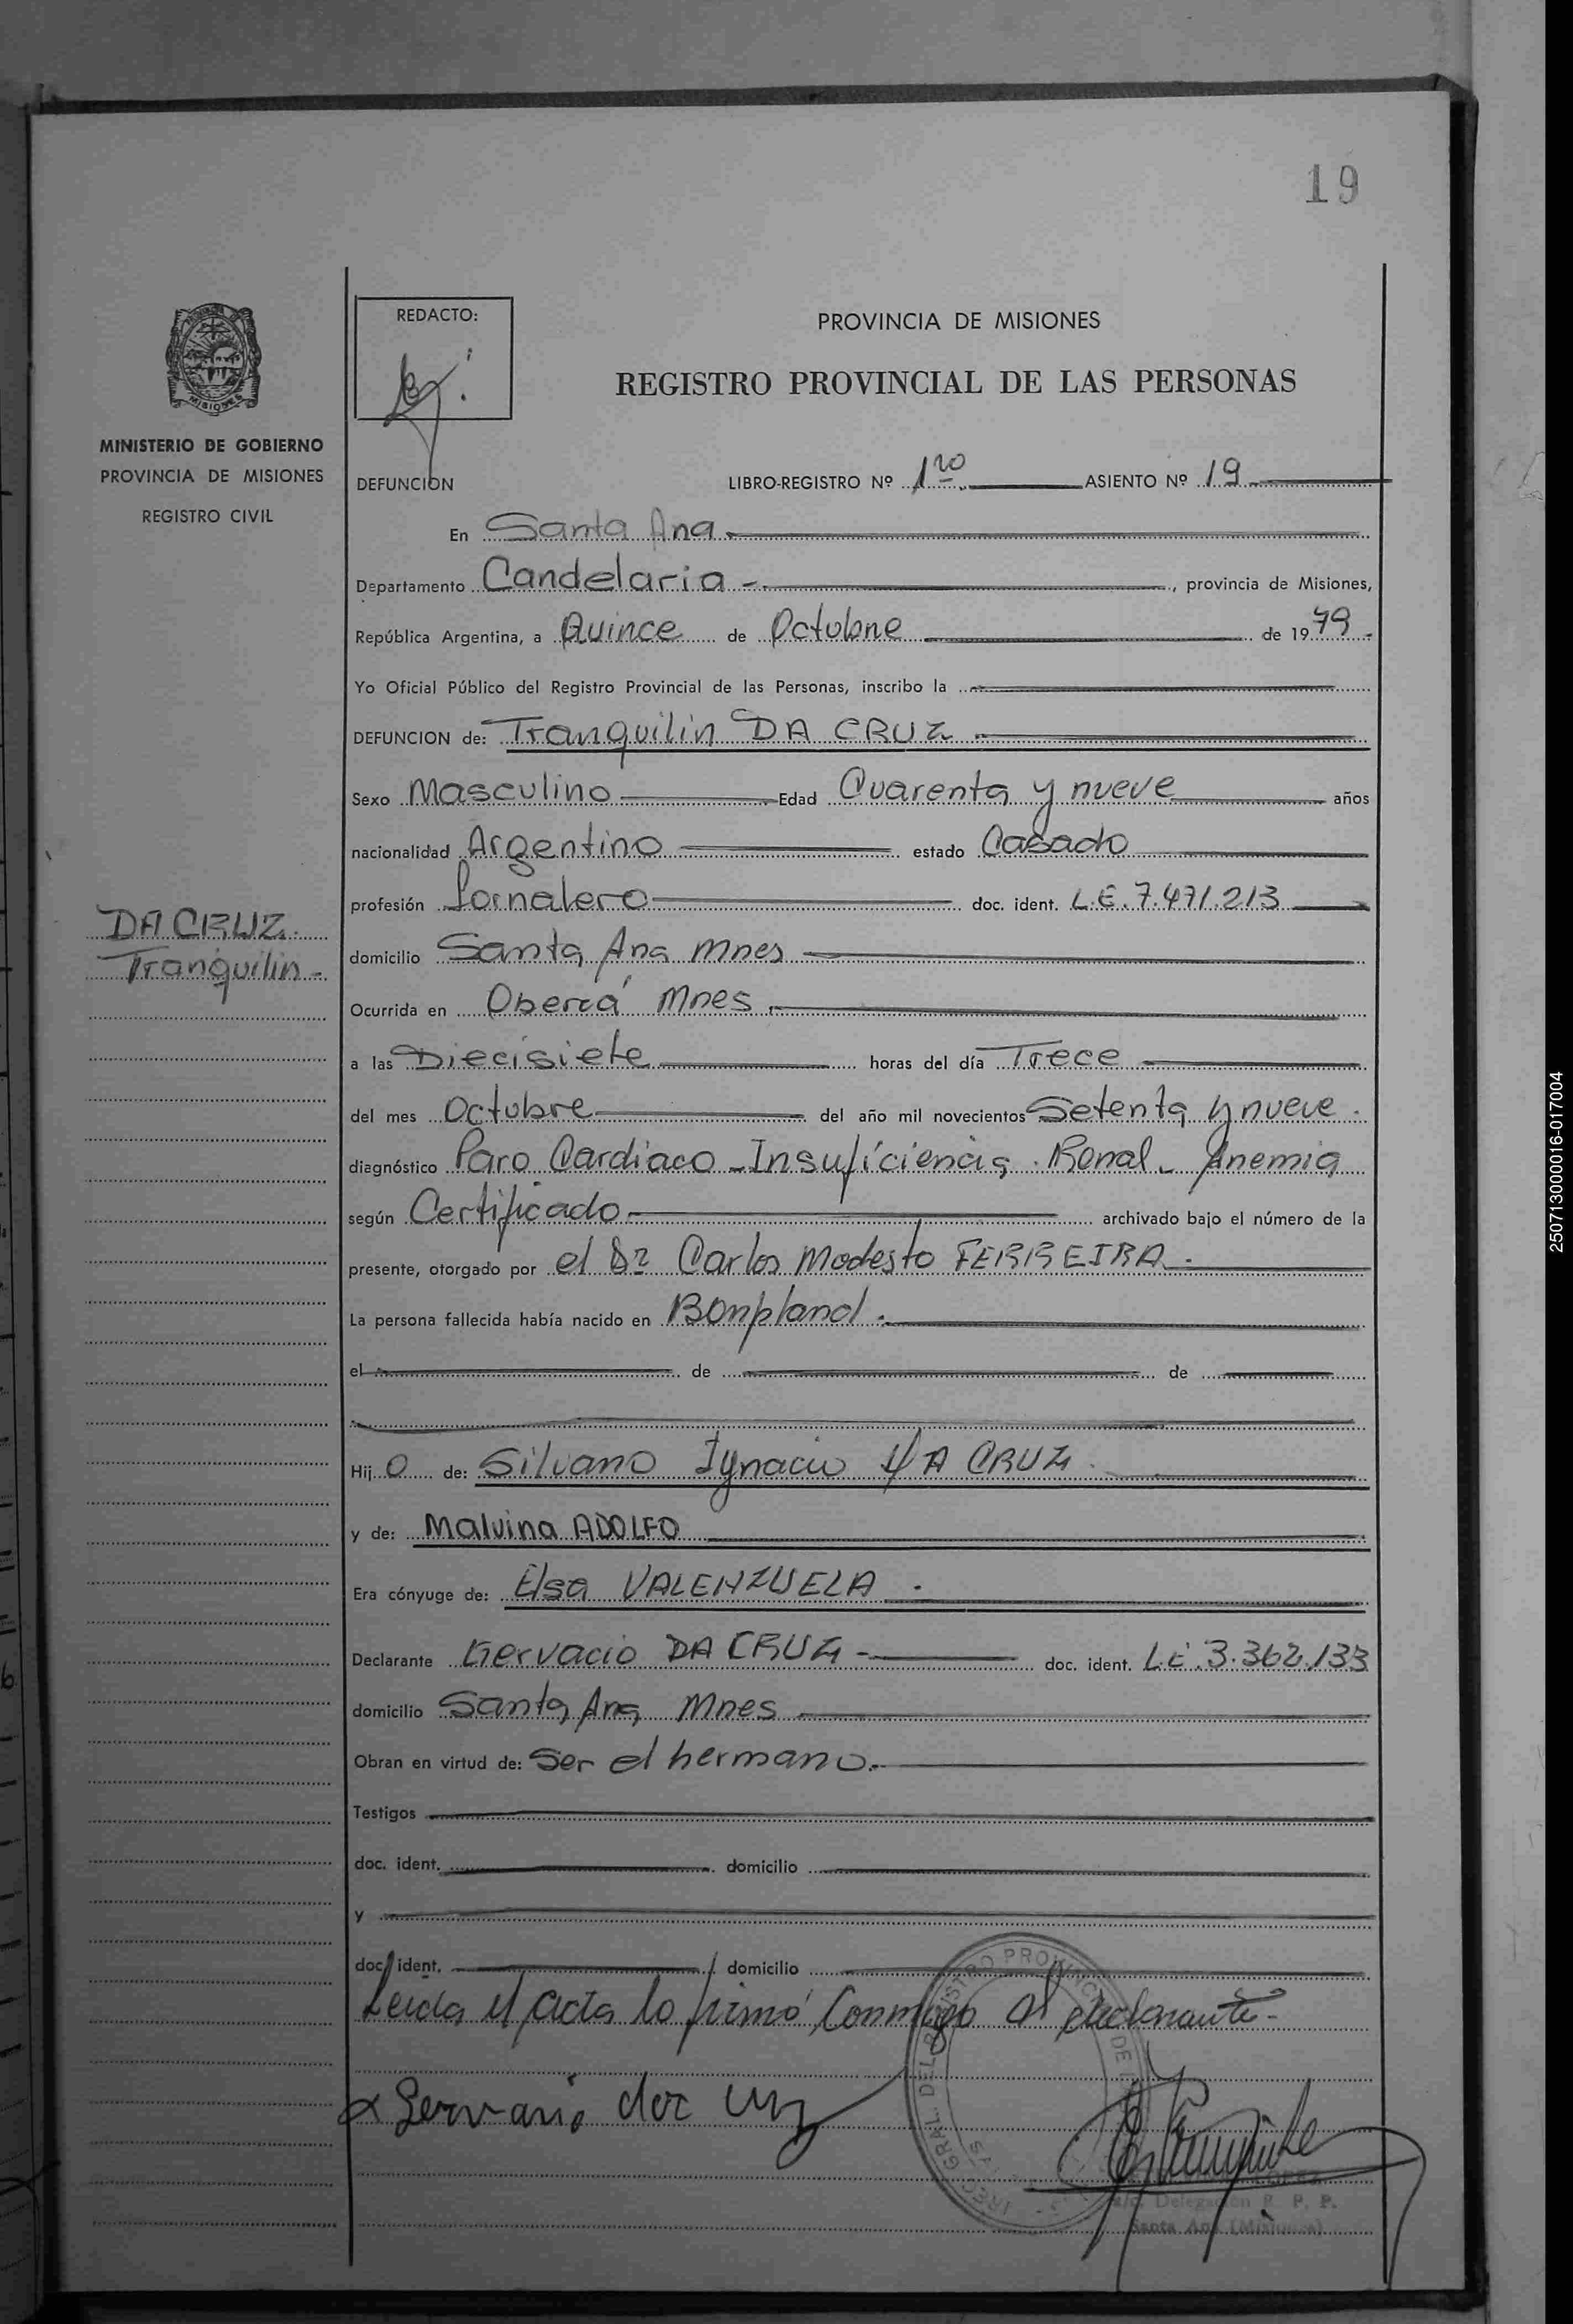 19
REDACTO:
PROVINCIA DE MISIONES
REGISTRO PROVINCIAL DE LAS PERSONAS
MISIONES
MINISTERIO DE GOBIERNO
PROVINCIA DE MISIONES
REGISTRO CIVIL
DEFUNCION LIBRO-REGISTRO Nº 1ro ASIENTO Nº 19
En Santa Ana
Departamento Candelaria -, provincia de Misiones,
República Argentina, a Quince de Octubre de 1979-
Yo Oficial Público del Registro Provincial de las Personas, inscribo la
DEFUNCION de: Tranquilin DA CRUZ
Sexo Masculino Edad Cuarenta y nueve años
nacionalidad Argentino estado Casado
profesión Jornalero doc. ident. L.E. 7.471.213
DA CRUZ.
Tranquilin -
domicilio Santa Ana Mnes
Ocurrida en Oberá Mnes
a las Diecisiete horas del día Trece
del mes Octubre del año mil novecientos Setenta y nueve.
diagnóstico Paro Cardiaco - Insuficiencia Renal - Anemia
según Certificado archivado bajo el número de la
presente, otorgado por el Dr Carlos Modesto FERREIRA.
La persona fallecida había nacido en Bonpland.
el de de
Hijo de: Silvano Ignacio DA CRUZ.
y de: Malvina ADOLFO
Era cónyuge de: Elsa VALENZUELA.
Declarante Gervacio DA CRUZ - doc. ident. L.E. 3.362.133
domicilio Santa Ana Mnes
Obran en virtud de: Ser el hermano.
Testigos
doc. ident. domicilio
y
doc. ident. domicilio
Leida el acta lo firmó conmigo el declarante -
x Gervacio da cruz
Delegación R. P. P.
Santa Ana (Misiones)
2507130000016-017004